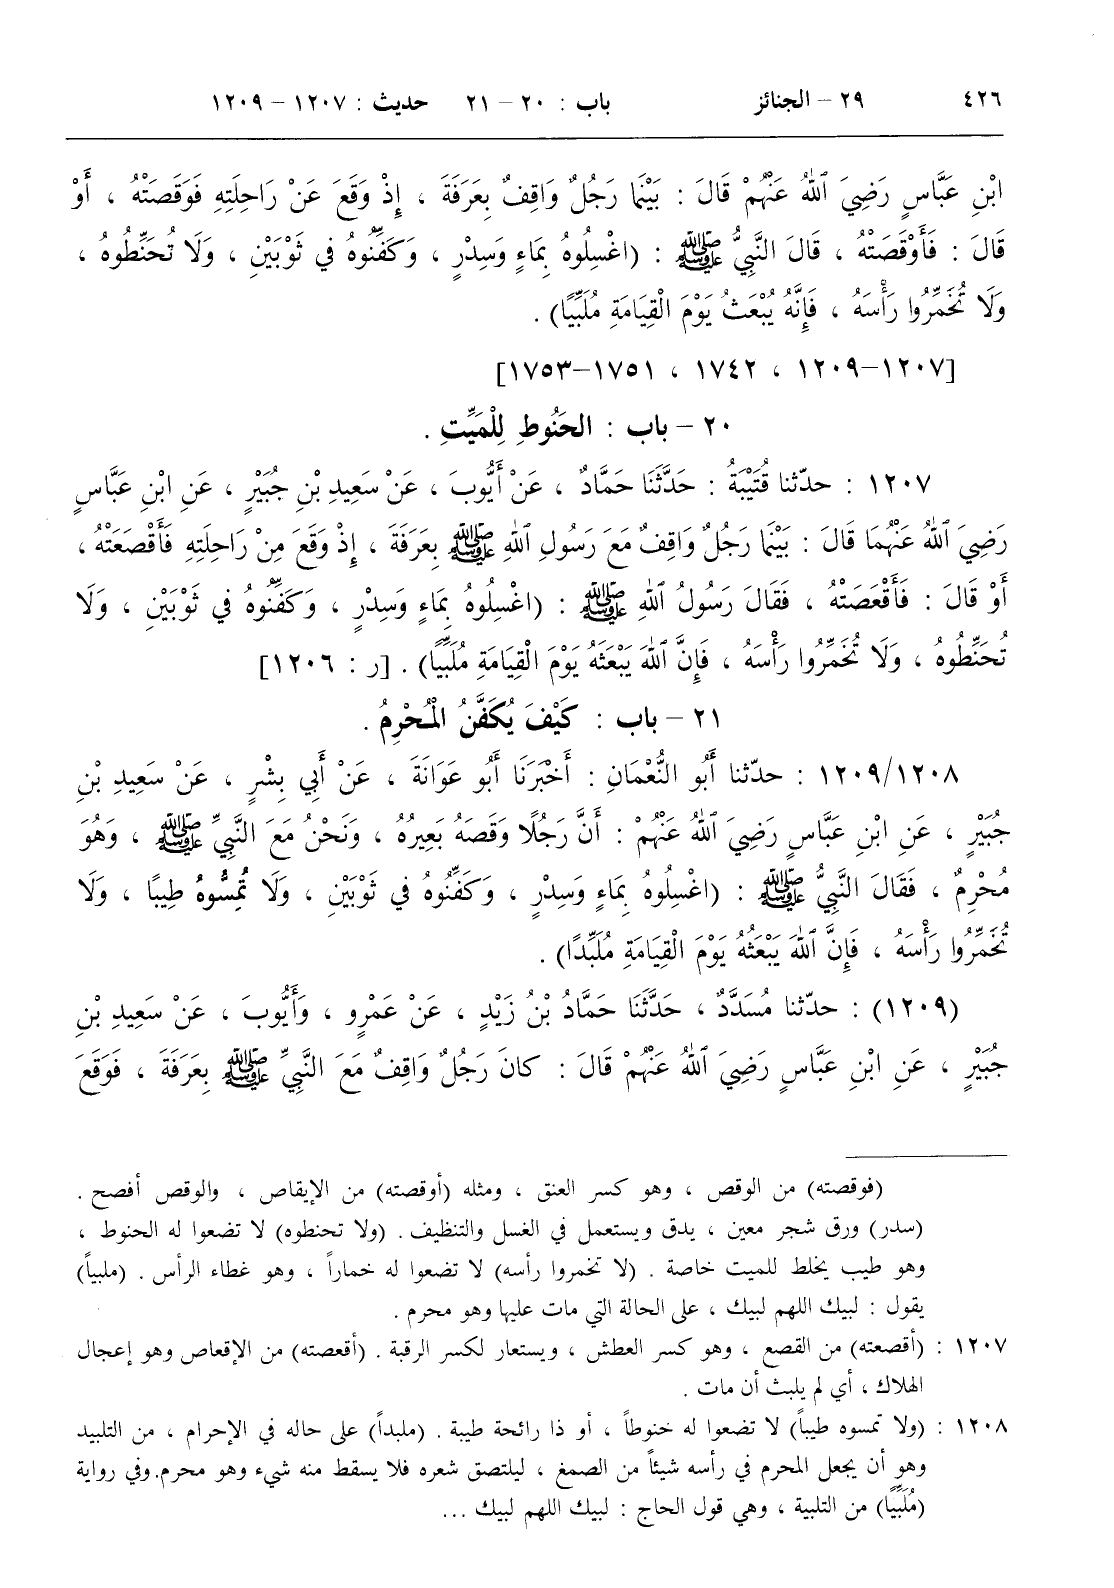 ٤٢٦ ٢٩ – الجنائز باب : ٢٠ – ٢١ حديث : ١٢٠٧ – ١٢٠٩
ابْنِ عَبَّاسٍ رَضِيَ ٱللهُ عَنْهُمْ قَالَ : بَيْنَما رَجُلٌ وَاقِفٌ بِعَرَفَةَ ، إِذْ وَقَعَ عَنْ رَاحِلَتِهِ فَوَقَصَتْهُ ، أَوْ
قَالَ : فَأَوْقَصَتْهُ ، قَالَ النَّبِيُّ ﷺ : (اغْسِلُوهُ بِمَاءٍ وَسِدْرٍ ، وَكَفِّنُوهُ في ثَوْبَيْنِ ، وَلَا تُحَنِّطُوهُ ،
وَلَا تُخَمِّرُوا رَأْسَهُ ، فَإِنَّهُ يُبْعَثُ يَوْمَ الْقِيَامَةِ مُلَبِّيًا) .
[١٢٠٧–١٢٠٩ ، ١٧٤٢ ، ١٧٥١–١٧٥٣]
٢٠ – باب : الحَنُوطِ لِلْمَيِّتِ .
١٢٠٧ : حدّثنا قُتَيْبَةُ : حَدَّثَنَا حَمَّادٌ ، عَنْ أَيُّوبَ ، عَنْ سَعِيدِ بْنِ جُبَيْرٍ ، عَنِ ابْنِ عَبَّاسٍ
رَضِيَ ٱللهُ عَنْهُمَا قَالَ : بَيْنَما رَجُلٌ وَاقِفٌ مَعَ رَسُولِ ٱللهِ ﷺ بِعَرَفَةَ ، إِذْ وَقَعَ مِنْ رَاحِلَتِهِ فَأَقْصَعَتْهُ ،
أَوْ قَالَ : فَأَقْعَصَتْهُ ، فَقَالَ رَسُولُ ٱللهِ ﷺ : (اغْسِلُوهُ بِمَاءٍ وَسِدْرٍ ، وَكَفِّنُوهُ في ثَوْبَيْنِ ، وَلَا
تُحَنِّطُوهُ ، وَلَا تُخَمِّرُوا رَأْسَهُ ، فَإِنَّ ٱللهَ يَبْعَثُهُ يَوْمَ الْقِيَامَةِ مُلَبِّيًا) . [ر : ١٢٠٦]
٢١ – باب : كَيْفَ يُكَفَّنُ الْمُحْرِمُ .
١٢٠٩/١٢٠٨ : حدّثنا أَبُو النُّعْمَانِ : أَخْبَرَنَا أَبُو عَوَانَةَ ، عَنْ أَبِي بِشْرٍ ، عَنْ سَعِيدِ بْنِ
جُبَيْرٍ ، عَنِ ابْنِ عَبَّاسٍ رَضِيَ ٱللهُ عَنْهُمْ : أَنَّ رَجُلًا وَقَصَهُ بَعِيرُهُ ، وَنَحْنُ مَعَ النَّبِيِّ ﷺ ، وَهُوَ
مُحْرِمٌ ، فَقَالَ النَّبِيُّ ﷺ : (اغْسِلُوهُ بِمَاءٍ وَسِدْرٍ ، وَكَفِّنُوهُ في ثَوْبَيْنِ ، وَلَا تُمِسُّوهُ طِيبًا ، وَلَا
تُخَمِّرُوا رَأْسَهُ ، فَإِنَّ ٱللهَ يَبْعَثُهُ يَوْمَ الْقِيَامَةِ مُلَبِّدًا) .
(١٢٠٩) : حدّثنا مُسَدَّدٌ ، حَدَّثَنَا حَمَّادُ بْنُ زَيْدٍ ، عَنْ عَمْرٍو ، وَأَيُّوبَ ، عَنْ سَعِيدِ بْنِ
جُبَيْرٍ ، عَنِ ابْنِ عَبَّاسٍ رَضِيَ ٱللهُ عَنْهُمْ قَالَ : كانَ رَجُلٌ وَاقِفٌ مَعَ النَّبِيِّ ﷺ بِعَرَفَةَ ، فَوَقَعَ
(فوقصته) من الوقص ، وهو كسر العنق ، ومثله (أوقصته) من الإيقاص ، والوقص أفصح .
(سدر) ورق شجر معين ، يدق ويستعمل في الغسل والتنظيف . (ولا تحنطوه) لا تضعوا له الحنوط ،
وهو طيب يخلط للميت خاصة . (لا تخمروا رأسه) لا تضعوا له خماراً ، وهو غطاء الرأس . (ملبياً)
يقول : لبيك اللهم لبيك ، على الحالة التي مات عليها وهو محرم .
١٢٠٧ : (أقصعته) من القصع ، وهو كسر العطش ، ويستعار لكسر الرقبة . (أقعصته) من الإقعاص وهو إعجال
الهلاك ، أي لم يلبث أن مات .
١٢٠٨ : (ولا تمسوه طيباً) لا تضعوا له خنوطاً ، أو ذا رائحة طيبة . (ملبداً) على حاله في الإحرام ، من التلبيد
وهو أن يجعل المحرم في رأسه شيئاً من الصمغ ، ليلتصق شعره فلا يسقط منه شيء وهو محرم.وفي رواية
(مُلَبِّيًا) من التلبية ، وهي قول الحاج : لبيك اللهم لبيك ...